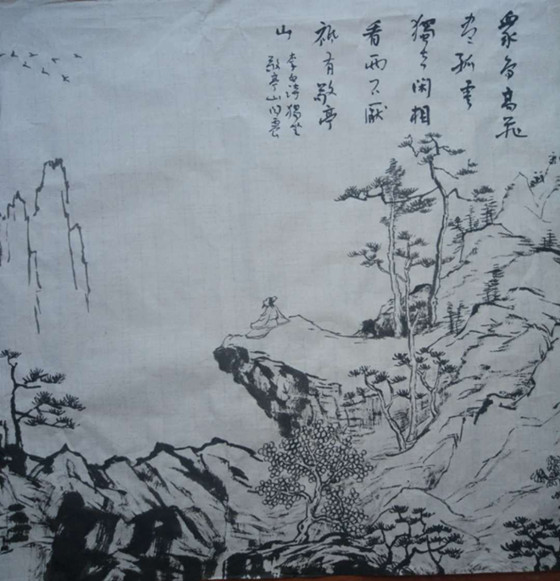 衆鳥高飛
盡孤雲
獨去閑相
看兩不厭
祇有敬亭
山
李白詩獨坐
敬亭山